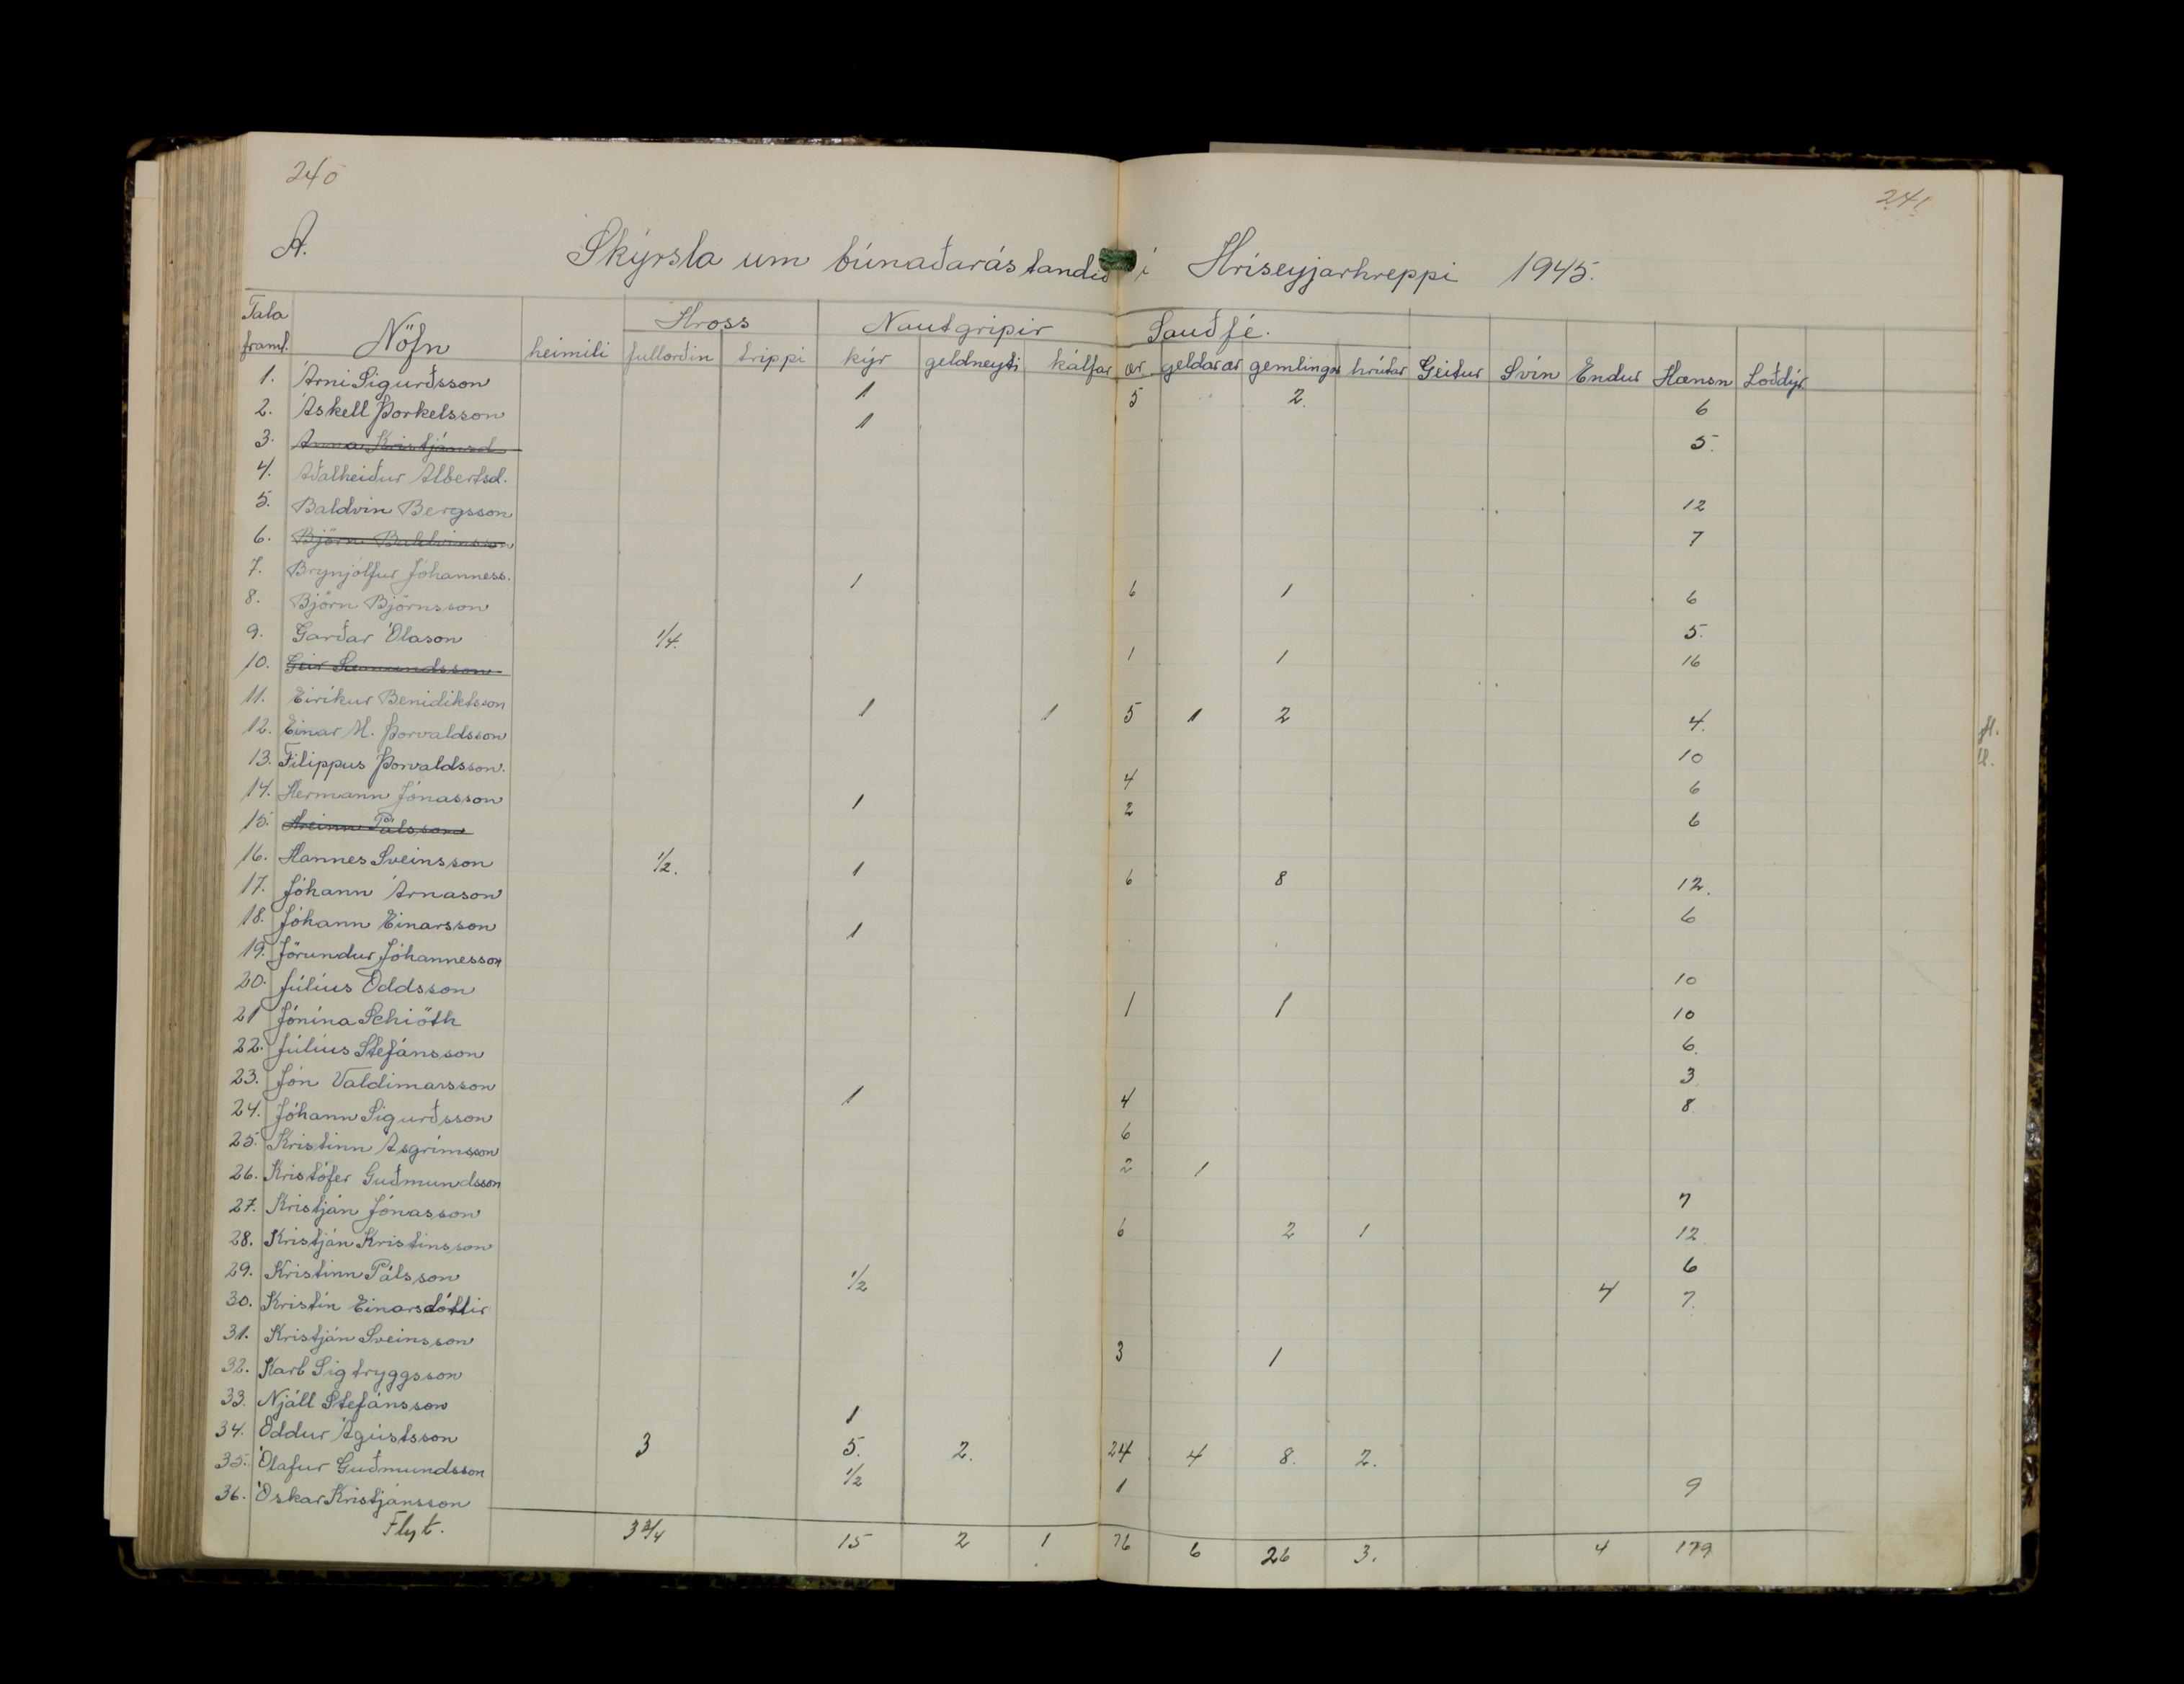 240
241
A. Skýrsla um búnaðarástandið í Hríseyjarhreppi 1945.
Tala framt. Nöfn heimili Hross Nautgripir Sauðfé.
fullorðin trippi kýr geldneyti kálfar ær geldar ær gemlingar hrútar Geitur Svín Endur Hænsn Loðdýr
1. Árni Sigurðsson 1 5 2. 6
2. Áskell Þorkelsson 1 5.
3. Anna Kristjánsd.
4. Aðalheiður Albertsd. 12
5. Baldvin Bergsson 7
6. Björn Baldvinsson
7. Brynjólfur Jóhanness. 1 6 1 6
8. Björn Björnsson 5.
9. Garðar Ólason 1/4. 1 1 16
10. Geir Sæmundsson
11. Eiríkur Benidiktsson 1 1 5 1 2 4.
12. Einar M. Þorvaldsson 10
13. Filippus Þorvaldsson. 4 6
14. Hermann Jónasson 1 2 6
15. Hreinn Pálsson
16. Hannes Sveinsson 1/2. 1 6 8 12.
17. Jóhann Árnason 6
18. Jóhann Einarsson 1
19. Jörundur Jóhannesson 10
20. Júlíus Oddsson 1 1 10
21 Jónína Schiöth 6.
22. Júlíus Stefánsson 3
23. Jón Valdimarsson 1 4 8.
24. Jóhann Sigurðsson 6
25. Kristinn Ásgrímsson 2 1
26. Kristófer Guðmundsson 7
27. Kristján Jónasson 6 2 1 12
28. Kristján Kristinsson 6
29. Kristinn Pálsson 1/2 4 7.
30. Kristín Einarsdóttir
31. Kristján Sveinsson 3 1
32. Karl Sigtryggsson
33. Njáll Stefánsson 1
34. Oddur Ágústsson 3 5. 2. 24 4 8. 2.
35. Ólafur Guðmundsson 1/2 1 9
36. Óskar Kristjánsson
Flyt. 3 3/4 15 2 1 76 6 26 3. 4 179